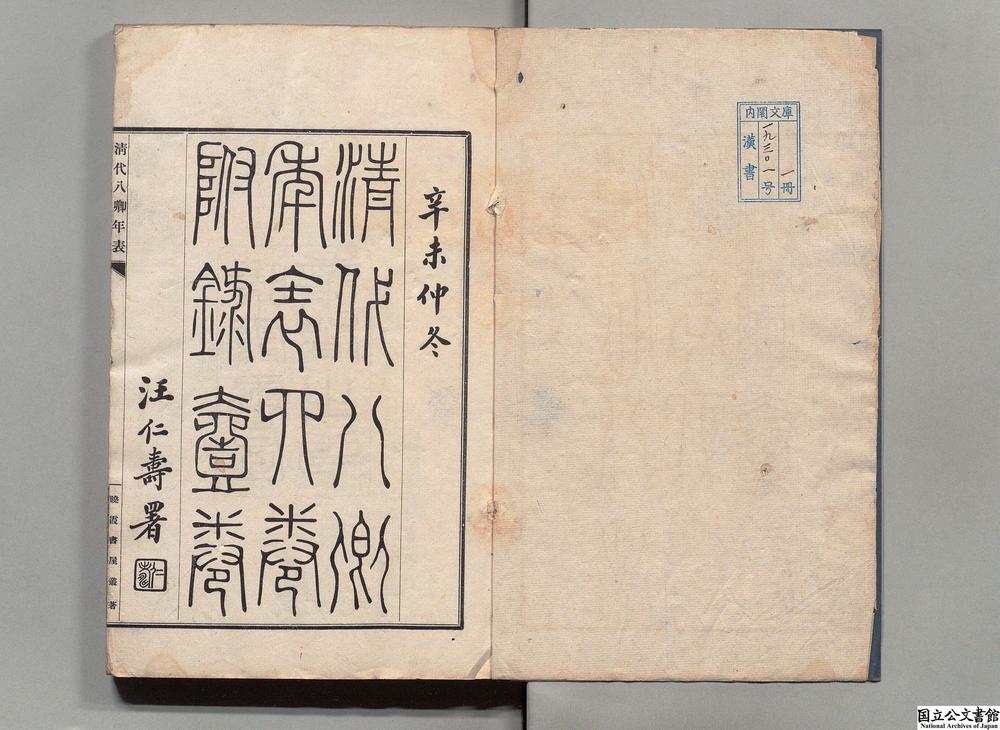 内閣文庫
一冊
一九三〇一号
漢書
辛未仲冬
清代八卿
年表四卷
附錄壹卷
汪仁壽署
清代八卿年表
曉霞書屋叢著
国立公文書館
National Archives of Japan